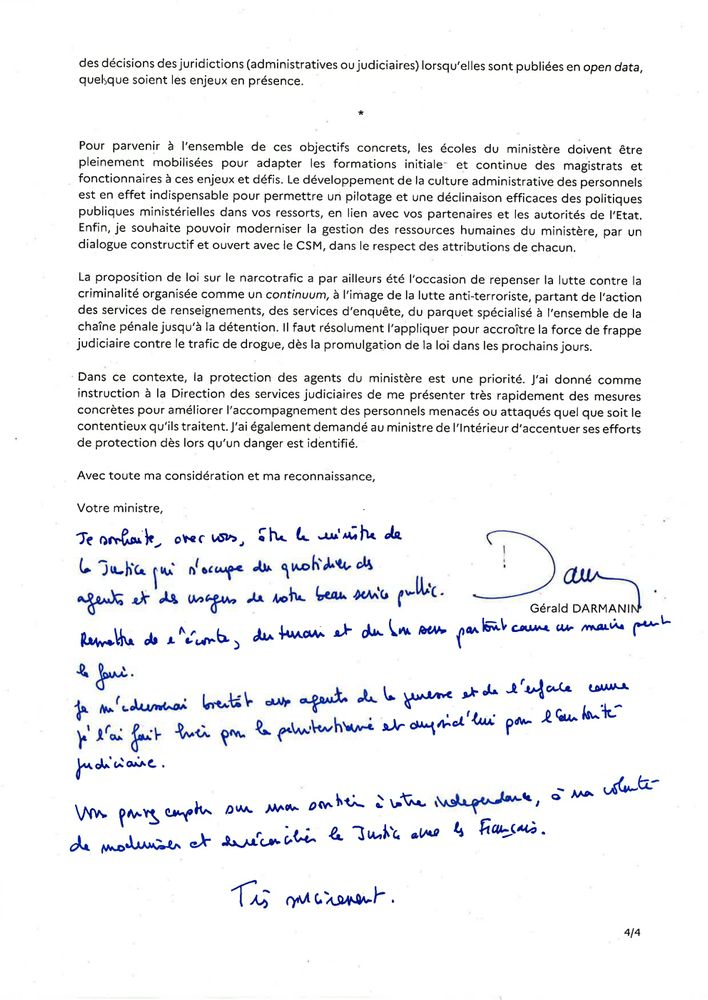 des décisions des juridictions (administratives ou judiciaires) lorsqu'elles sont publiées en open data,
quelque soient les enjeux en présence.
*
Pour parvenir à l'ensemble de ces objectifs concrets, les écoles du ministère doivent être
pleinement mobilisées pour adapter les formations initiale et continue des magistrats et
fonctionnaires à ces enjeux et défis. Le développement de la culture administrative des personnels
est en effet indispensable pour permettre un pilotage et une déclinaison efficaces des politiques
publiques ministérielles dans vos ressorts, en lien avec vos partenaires et les autorités de l'Etat.
Enfin, je souhaite pouvoir moderniser la gestion des ressources humaines du ministère, par un
dialogue constructif et ouvert avec le CSM, dans le respect des attributions de chacun.
La proposition de loi sur le narcotrafic a par ailleurs été l'occasion de repenser la lutte contre la
criminalité organisée comme un continuum, à l'image de la lutte anti-terroriste, partant de l'action
des services de renseignements, des services d'enquête, du parquet spécialisé à l'ensemble de la
chaîne pénale jusqu'à la détention. Il faut résolument l'appliquer pour accroître la force de frappe
judiciaire contre le trafic de drogue, dès la promulgation de la loi dans les prochains jours.
Dans ce contexte, la protection des agents du ministère est une priorité. J'ai donné comme
instruction à la Direction des services judiciaires de me présenter très rapidement des mesures
concrètes pour améliorer l'accompagnement des personnels menacés ou attaqués quel que soit le
contentieux qu'ils traitent. J'ai également demandé au ministre de l'Intérieur d'accentuer ses efforts
de protection dès lors qu'un danger est identifié.
Avec toute ma considération et ma reconnaissance,
Votre ministre,
Je souhaite, avec vous, être le ministre de
la Justice qui s'occupe du quotidien des
agents et des usagers de notre beau service public.
Gérald DARMANIN
Remettre de l'écoute, du terrain et du bon sens partout comme un maire peut
le faire.
Je m'adresserai bientôt aux agents de la jeunesse et de l'enfance comme
je l'ai fait hier pour la pénitentiaire et aujourd'hui pour l'autorité
judiciaire.
Vous pouvez compter sur mon soutien à votre indépendance, à ma volonté
de moderniser et de réconcilier la Justice avec les Français.
Très sincèrement.
4/4